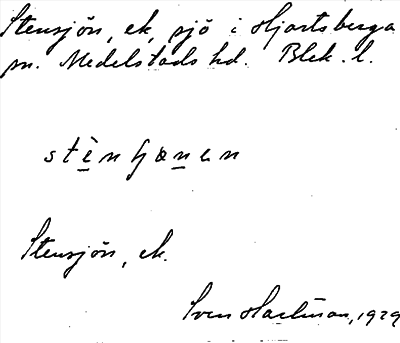 Stensjön, ek, sjö i Hjortsberga
sn. Medelstads hd. Blek. l.
stènʃɶnen
Stensjön, ek.
Sven Hartman, 1929